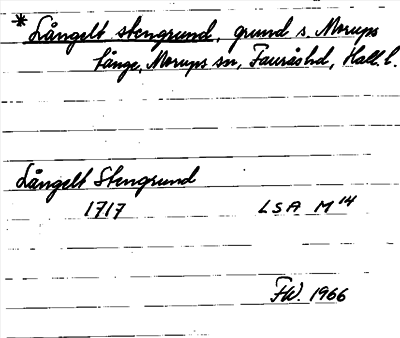 * Långelt stengrund, grund s. Morups
Tånge, Morups sn, Fauråshd, Hall. l.
Långelt Stengrund
1717 LSA M 14
FW. 1966